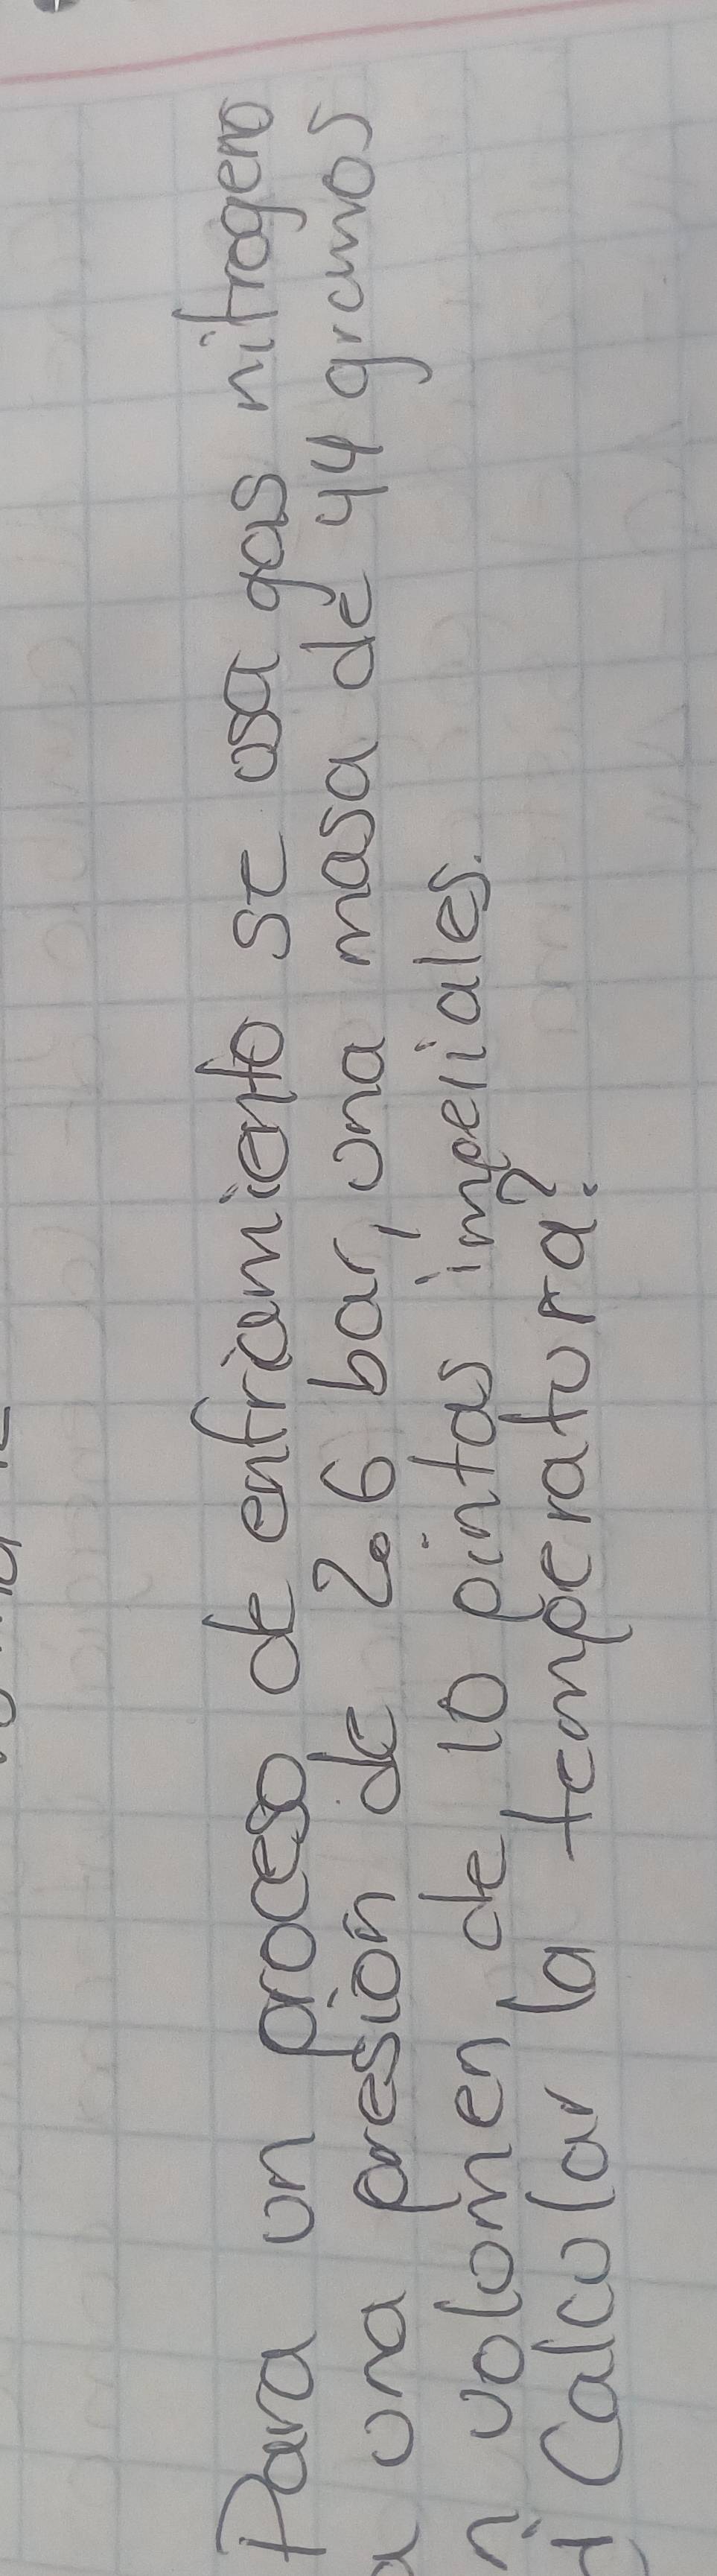 Para un proceso de enfriamiento se usa gas nitrogeno
a una presión de 2.6 bar, una masa de 44 gramos
n volumen de 10 pintas imperiales.
y Calcular la temperatura?